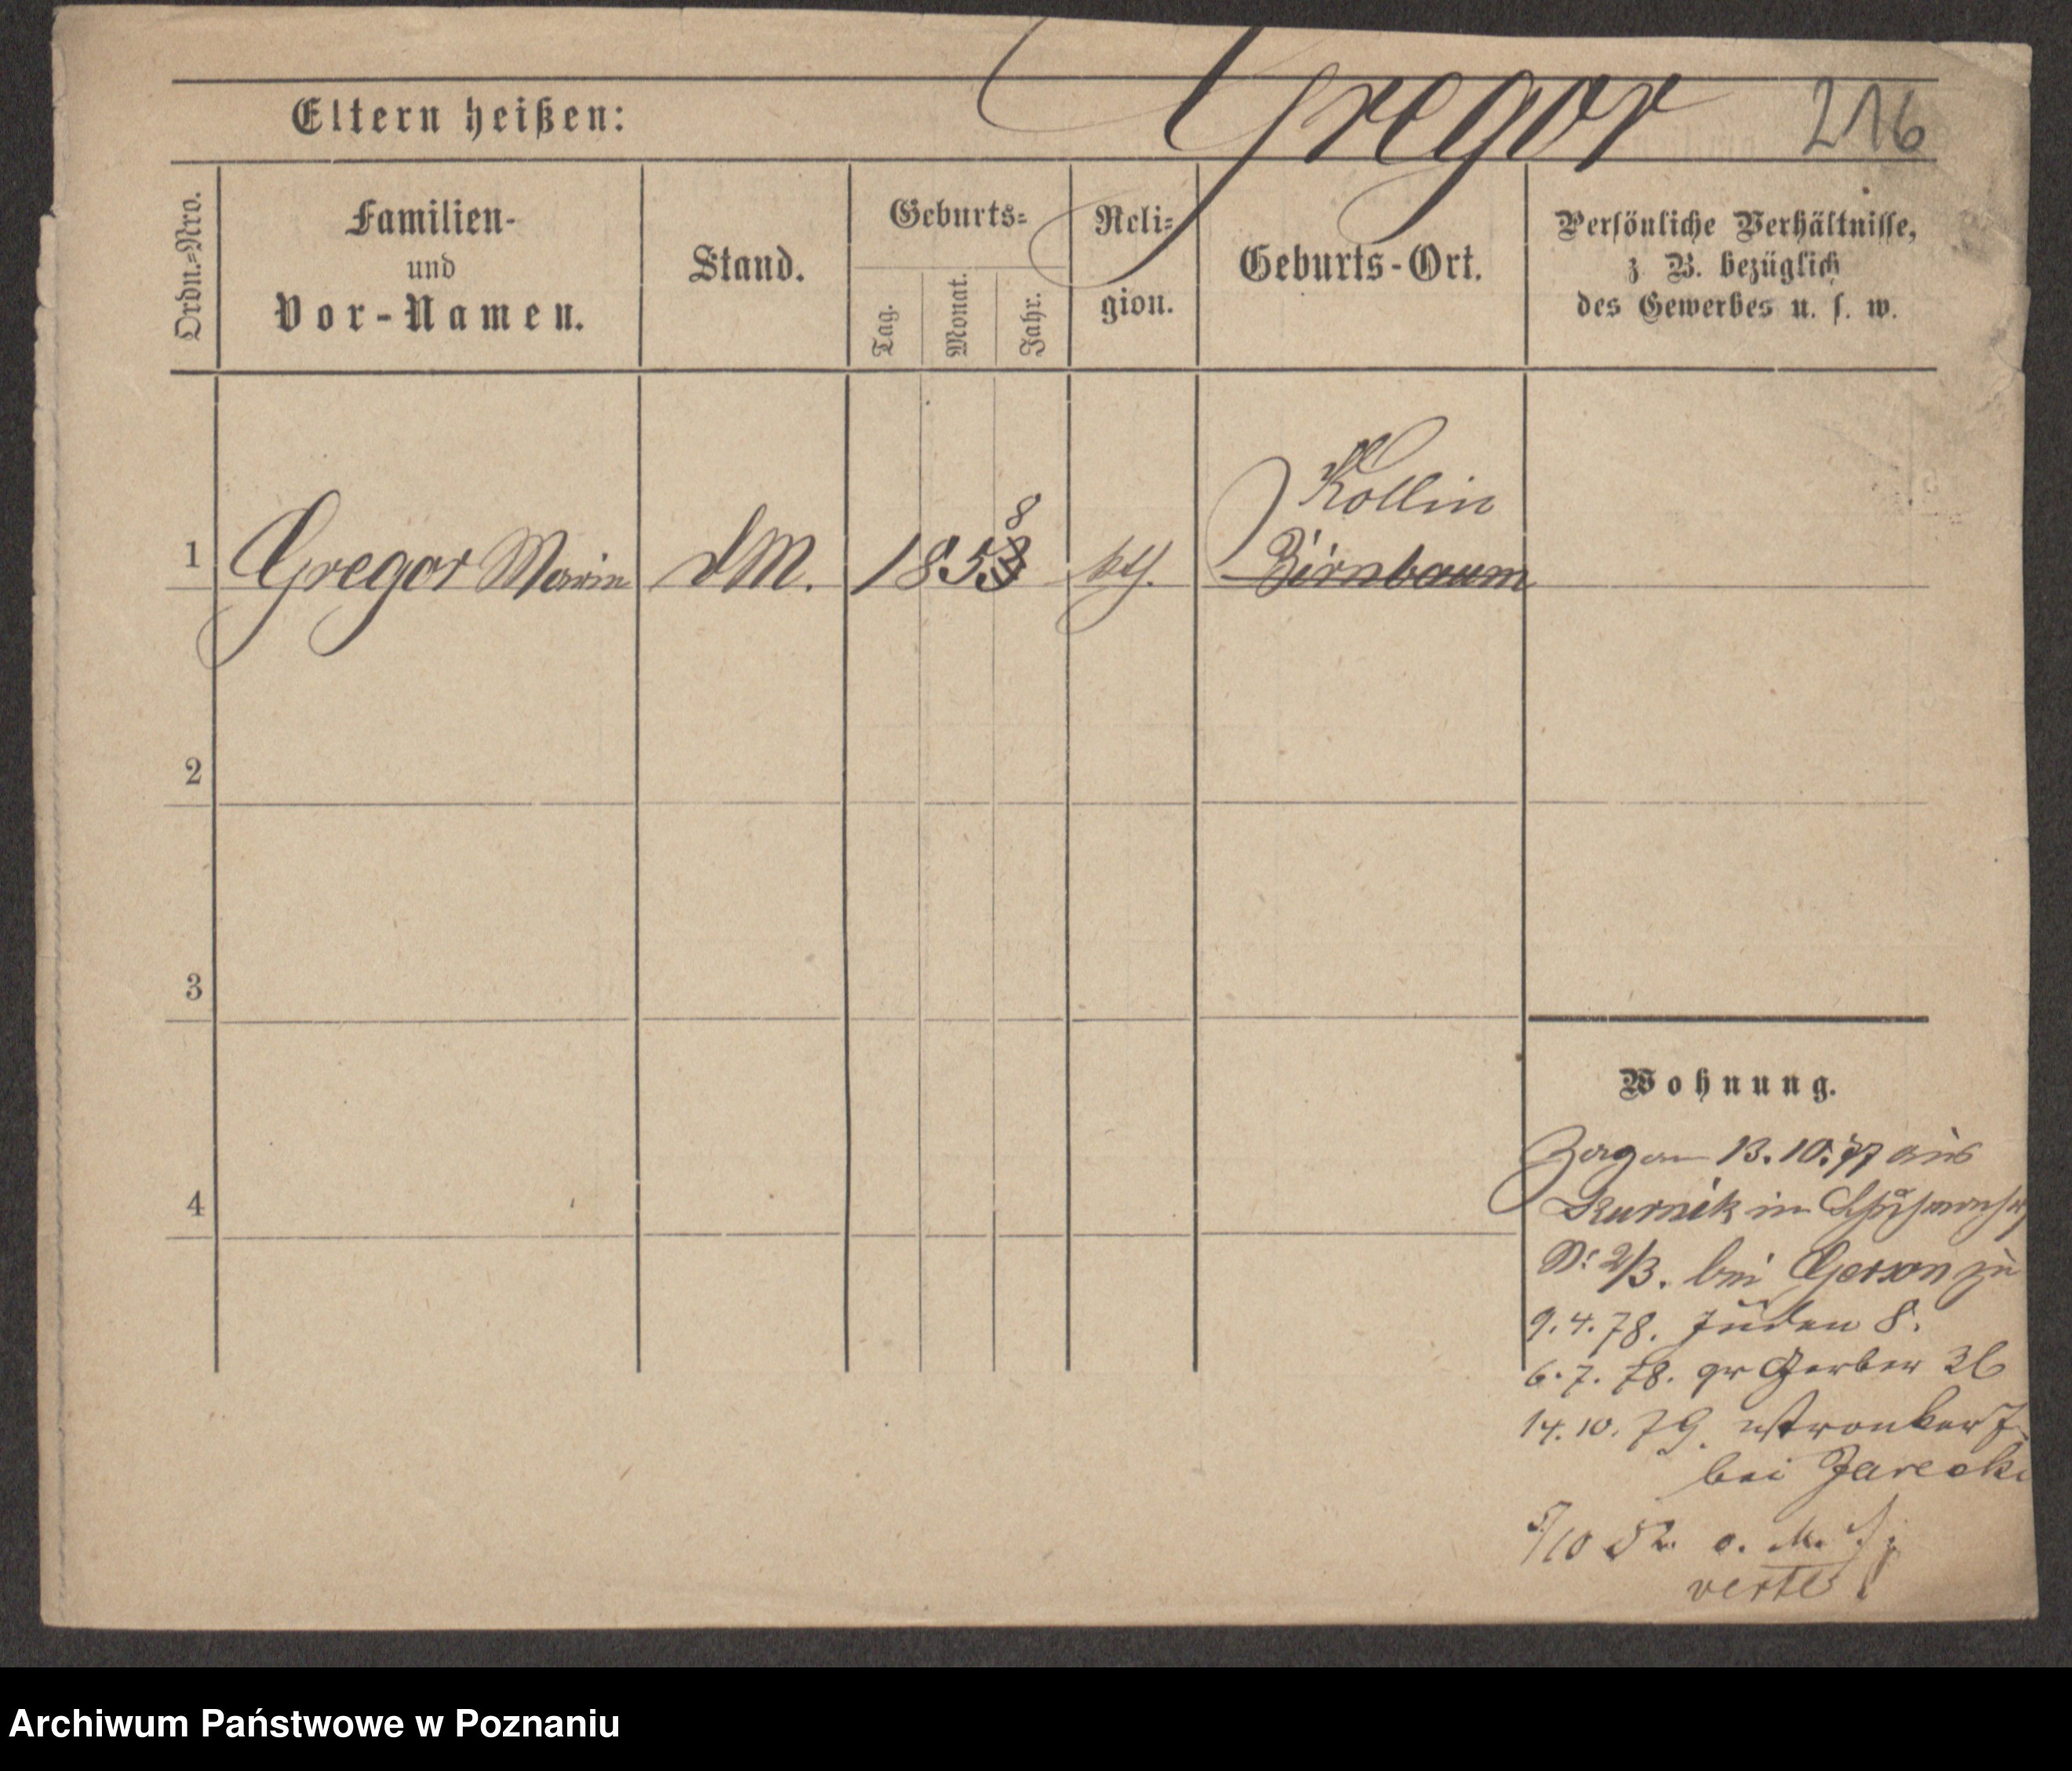 Gregor 216
Eltern heißen:
Ordn.-Nro.
Familien-
und
Vor-Namen.
Stand.
Geburts-
Tag.
Monat.
Jahr.
Reli-
gion.
Geburts-Ort.
Persönliche Verhältnisse,
z B. bezüglich
des Gewerbes u. s. w.
Kollin
1 Gregor Marie DM. 1858 kth. Birnbaum
2
3
4
Wohnung.
Zog am 13.10.77 aus
Kurnik in
No 2/3. bei Gerson zu
9.4.78. Juden 8.
6.7.78. gr Gerber 36
14.10.79. Wronker 7
bei Jarecki
5/10 82. o. M.
verte!
Archiwum Państwowe w Poznaniu